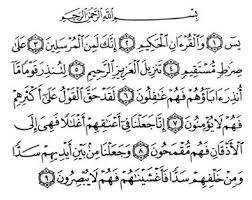 بِسْمِ اللَّهِ الرَّحْمَٰنِ الرَّحِيمِ
يسٓ ١ وَالْقُرْءَانِ الْحَكِيمِ ٢ إِنَّكَ لَمِنَ الْمُرْسَلِينَ ٣ عَلَىٰ
صِرَٰطٍ مُّسْتَقِيمٍ ٤ تَنزِيلَ الْعَزِيزِ الرَّحِيمِ ٥ لِتُنذِرَ قَوْمًا مَّا
أُنذِرَ ءَابَاؤُهُمْ فَهُمْ غَٰفِلُونَ ٦ لَقَدْ حَقَّ الْقَوْلُ عَلَىٰ أَكْثَرِهِمْ
فَهُمْ لَا يُؤْمِنُونَ ٧ إِنَّا جَعَلْنَا فِي أَعْنَٰقِهِمْ أَغْلَٰلًا فَهِيَ إِلَى
الْأَذْقَانِ فَهُم مُّقْمَحُونَ ٨ وَجَعَلْنَا مِن بَيْنِ أَيْدِيهِمْ سَدًّا
وَمِنْ خَلْفِهِمْ سَدًّا فَأَغْشَيْنَٰهُمْ فَهُمْ لَا يُبْصِرُونَ ٩